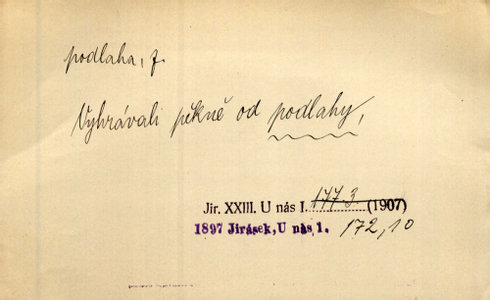 podlaha, f.
Vyhrávali pěkně od podlahy,
Jir. XXIII. U nás I. 177 3. (1907)
1897 Jirásek, U nás 1. 172,10